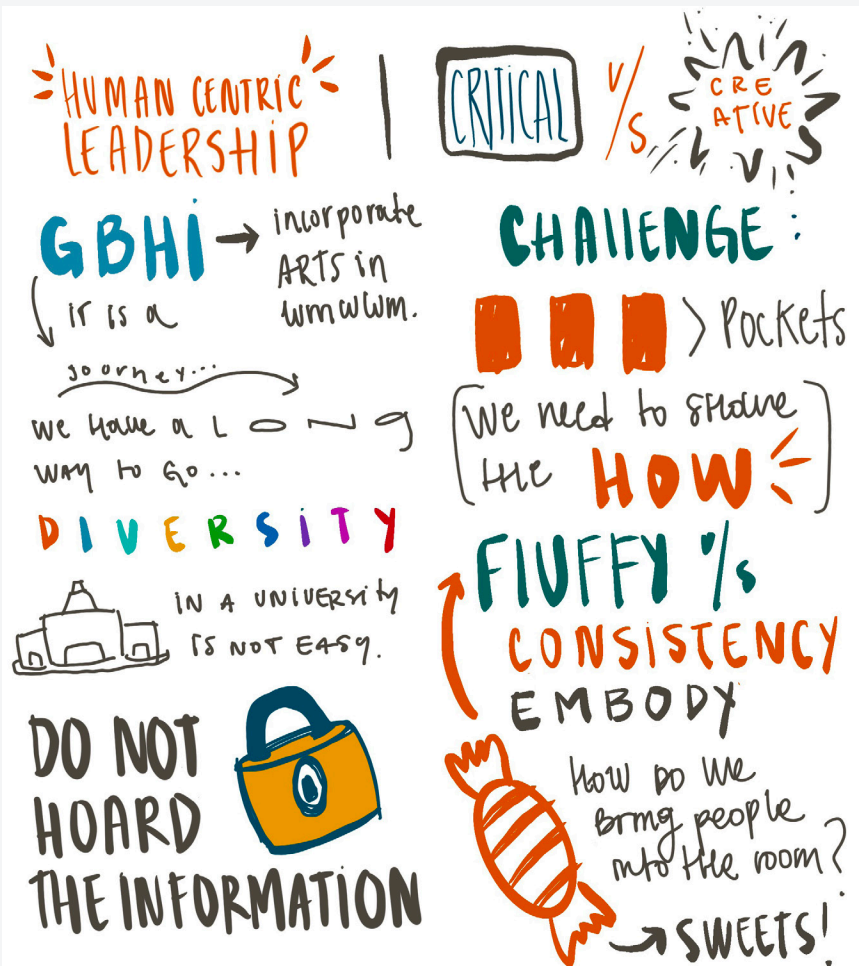 HUMAN CENTRIC
LEADERSHIP
CRITICAL
V/S
CRE
ATIVE
GBHI → incorporate
ARTS in
IT IS A
JOURNEY...
WE HAVE A LONG
WAY TO GO...
DIVERSITY
IN A UNIVERSITY
IS NOT EASY.
DO NOT
HOARD
THE INFORMATION
CHALLENGE:
> POCKETS
(WE need to SHARE
the HOW)
FLUFFY V/S
CONSISTENCY
EMBODY
HOW DO WE
BRING people
into the room?
→ SWEETS!